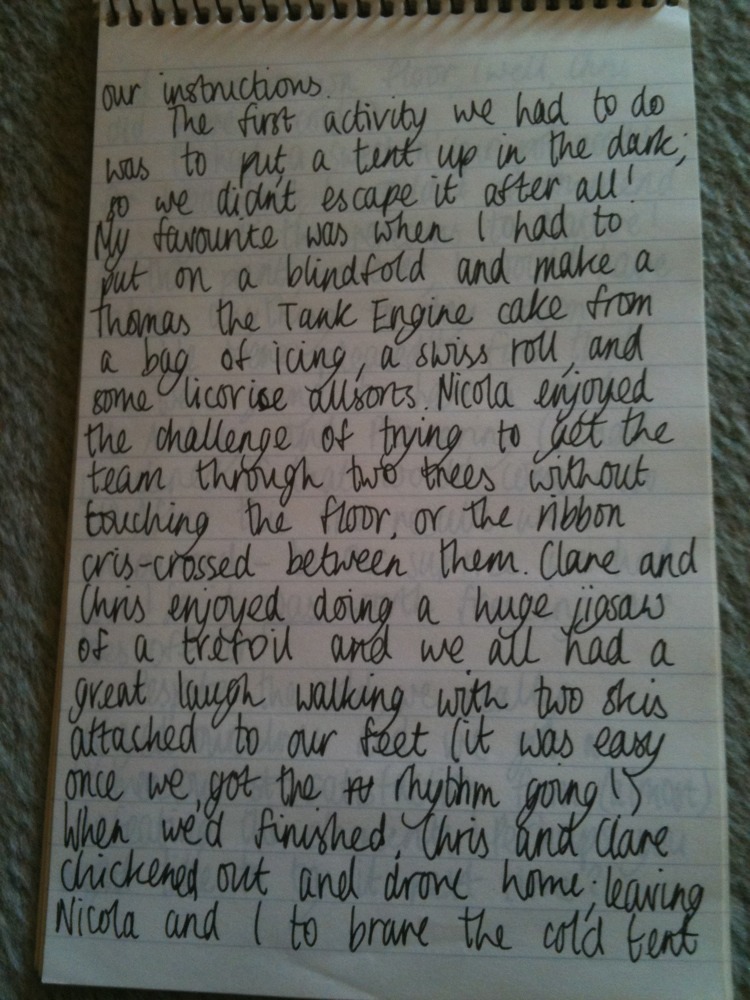 our instructions.
The first activity we had to do
was to put a tent up in the dark;
so we didn't escape it after all!
My favourite was when I had to
put on a blindfold and make a
Thomas the Tank Engine cake from
a bag of icing, a swiss roll, and
some licorise allsorts. Nicola enjoyed
the challenge of trying to get the
team through two trees without
touching the floor, or the ribbon
cris-crossed between them. Clare and
Chris enjoyed doing a huge jigsaw
of a trefoil and we all had a
great laugh walking with two skis
attached to our feet (it was easy
once we got the rhythm going!)
When we'd finished, Chris and Clare
chickened out and drove home; leaving
Nicola and I to brave the cold tent